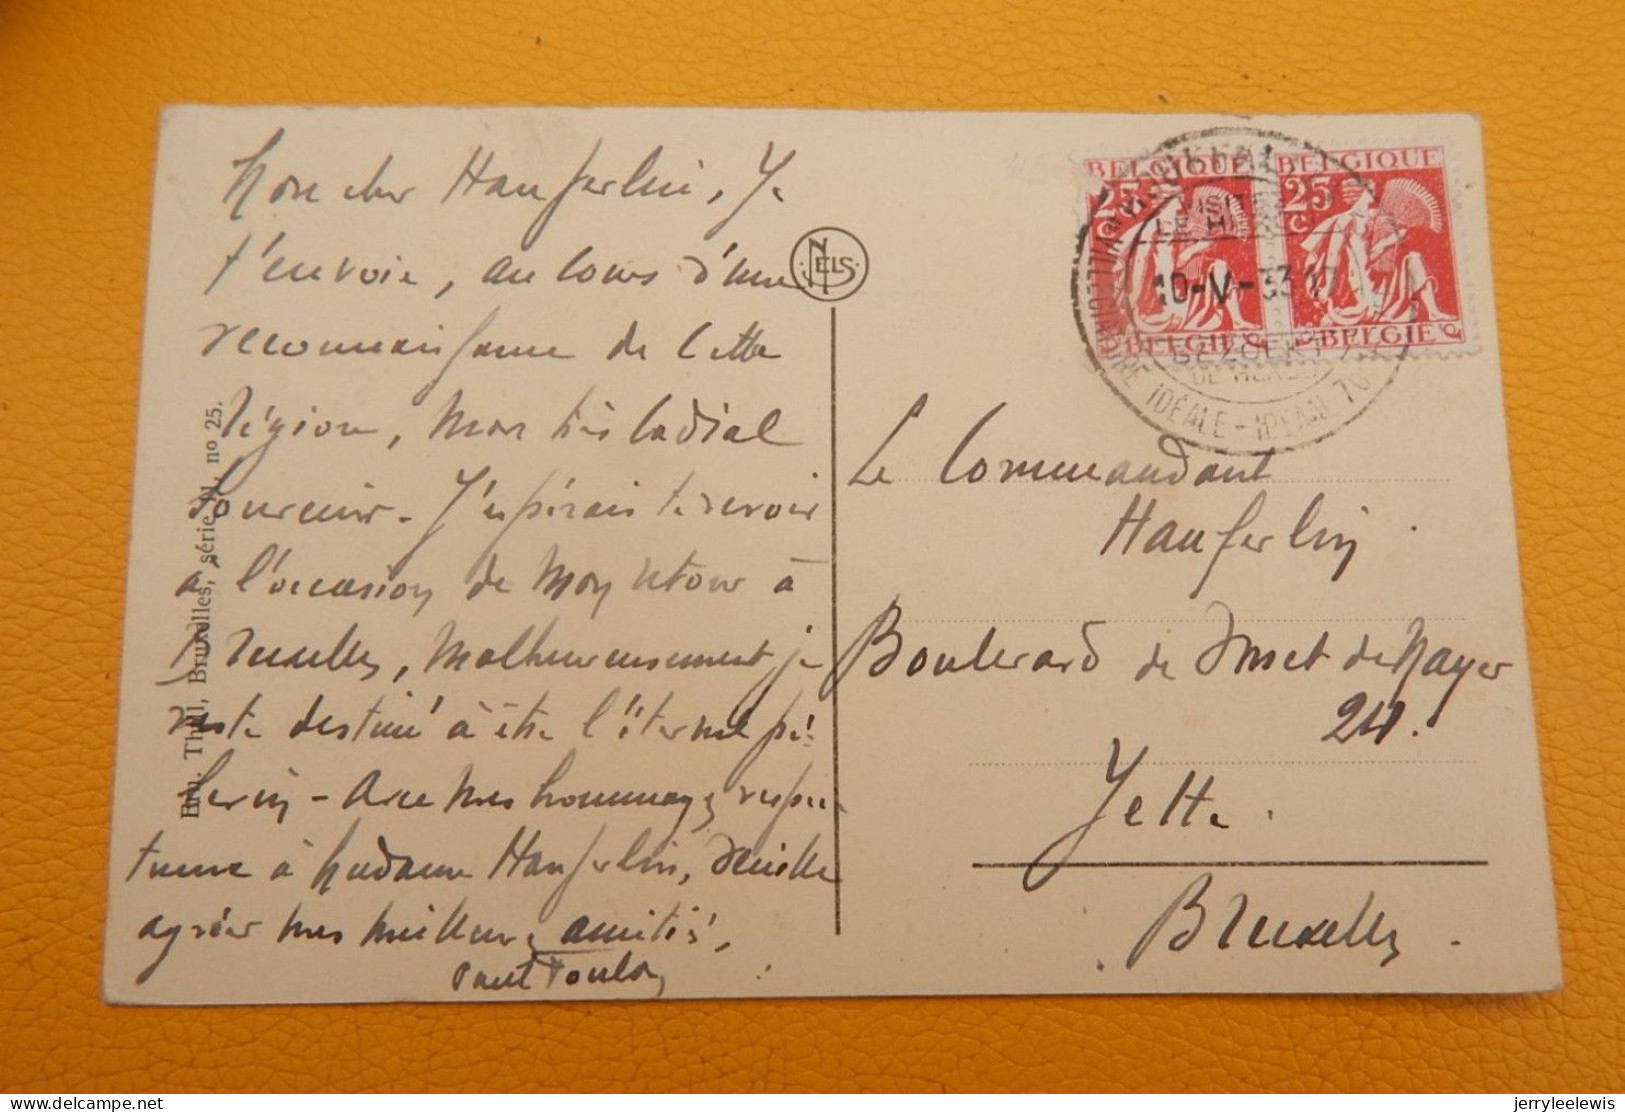 Mon cher Hauferlin, Je
t'envoie, au cours d'une
reconnaissance de cette
région, mon très cordial
souvenir - J'espérais te revoir
à l'occasion de mon retour à
Bruxelles, malheureusement je
reste destiné à être l'éternel pé-
lerin - Avec mes hommages respec-
tueux à Madame Hauferlin, veuille
agréer mes meilleures amitiés,
Paul Toulon
NELS
Thill, Bruxelles, série 11, no 25.
BELGIQUE BELGIQUE
25 25
c c
BELGIE BELGIE
VISITEZ
LE H
10-V-33 17
BEZOEKT
DE
VILLÉGIATURE IDÉALE - IDEAAL
Le Commandant
Hauferlin
Boulevard de Smet de Nayer
24.
Jette.
Bruxelles.
jerryleelewis